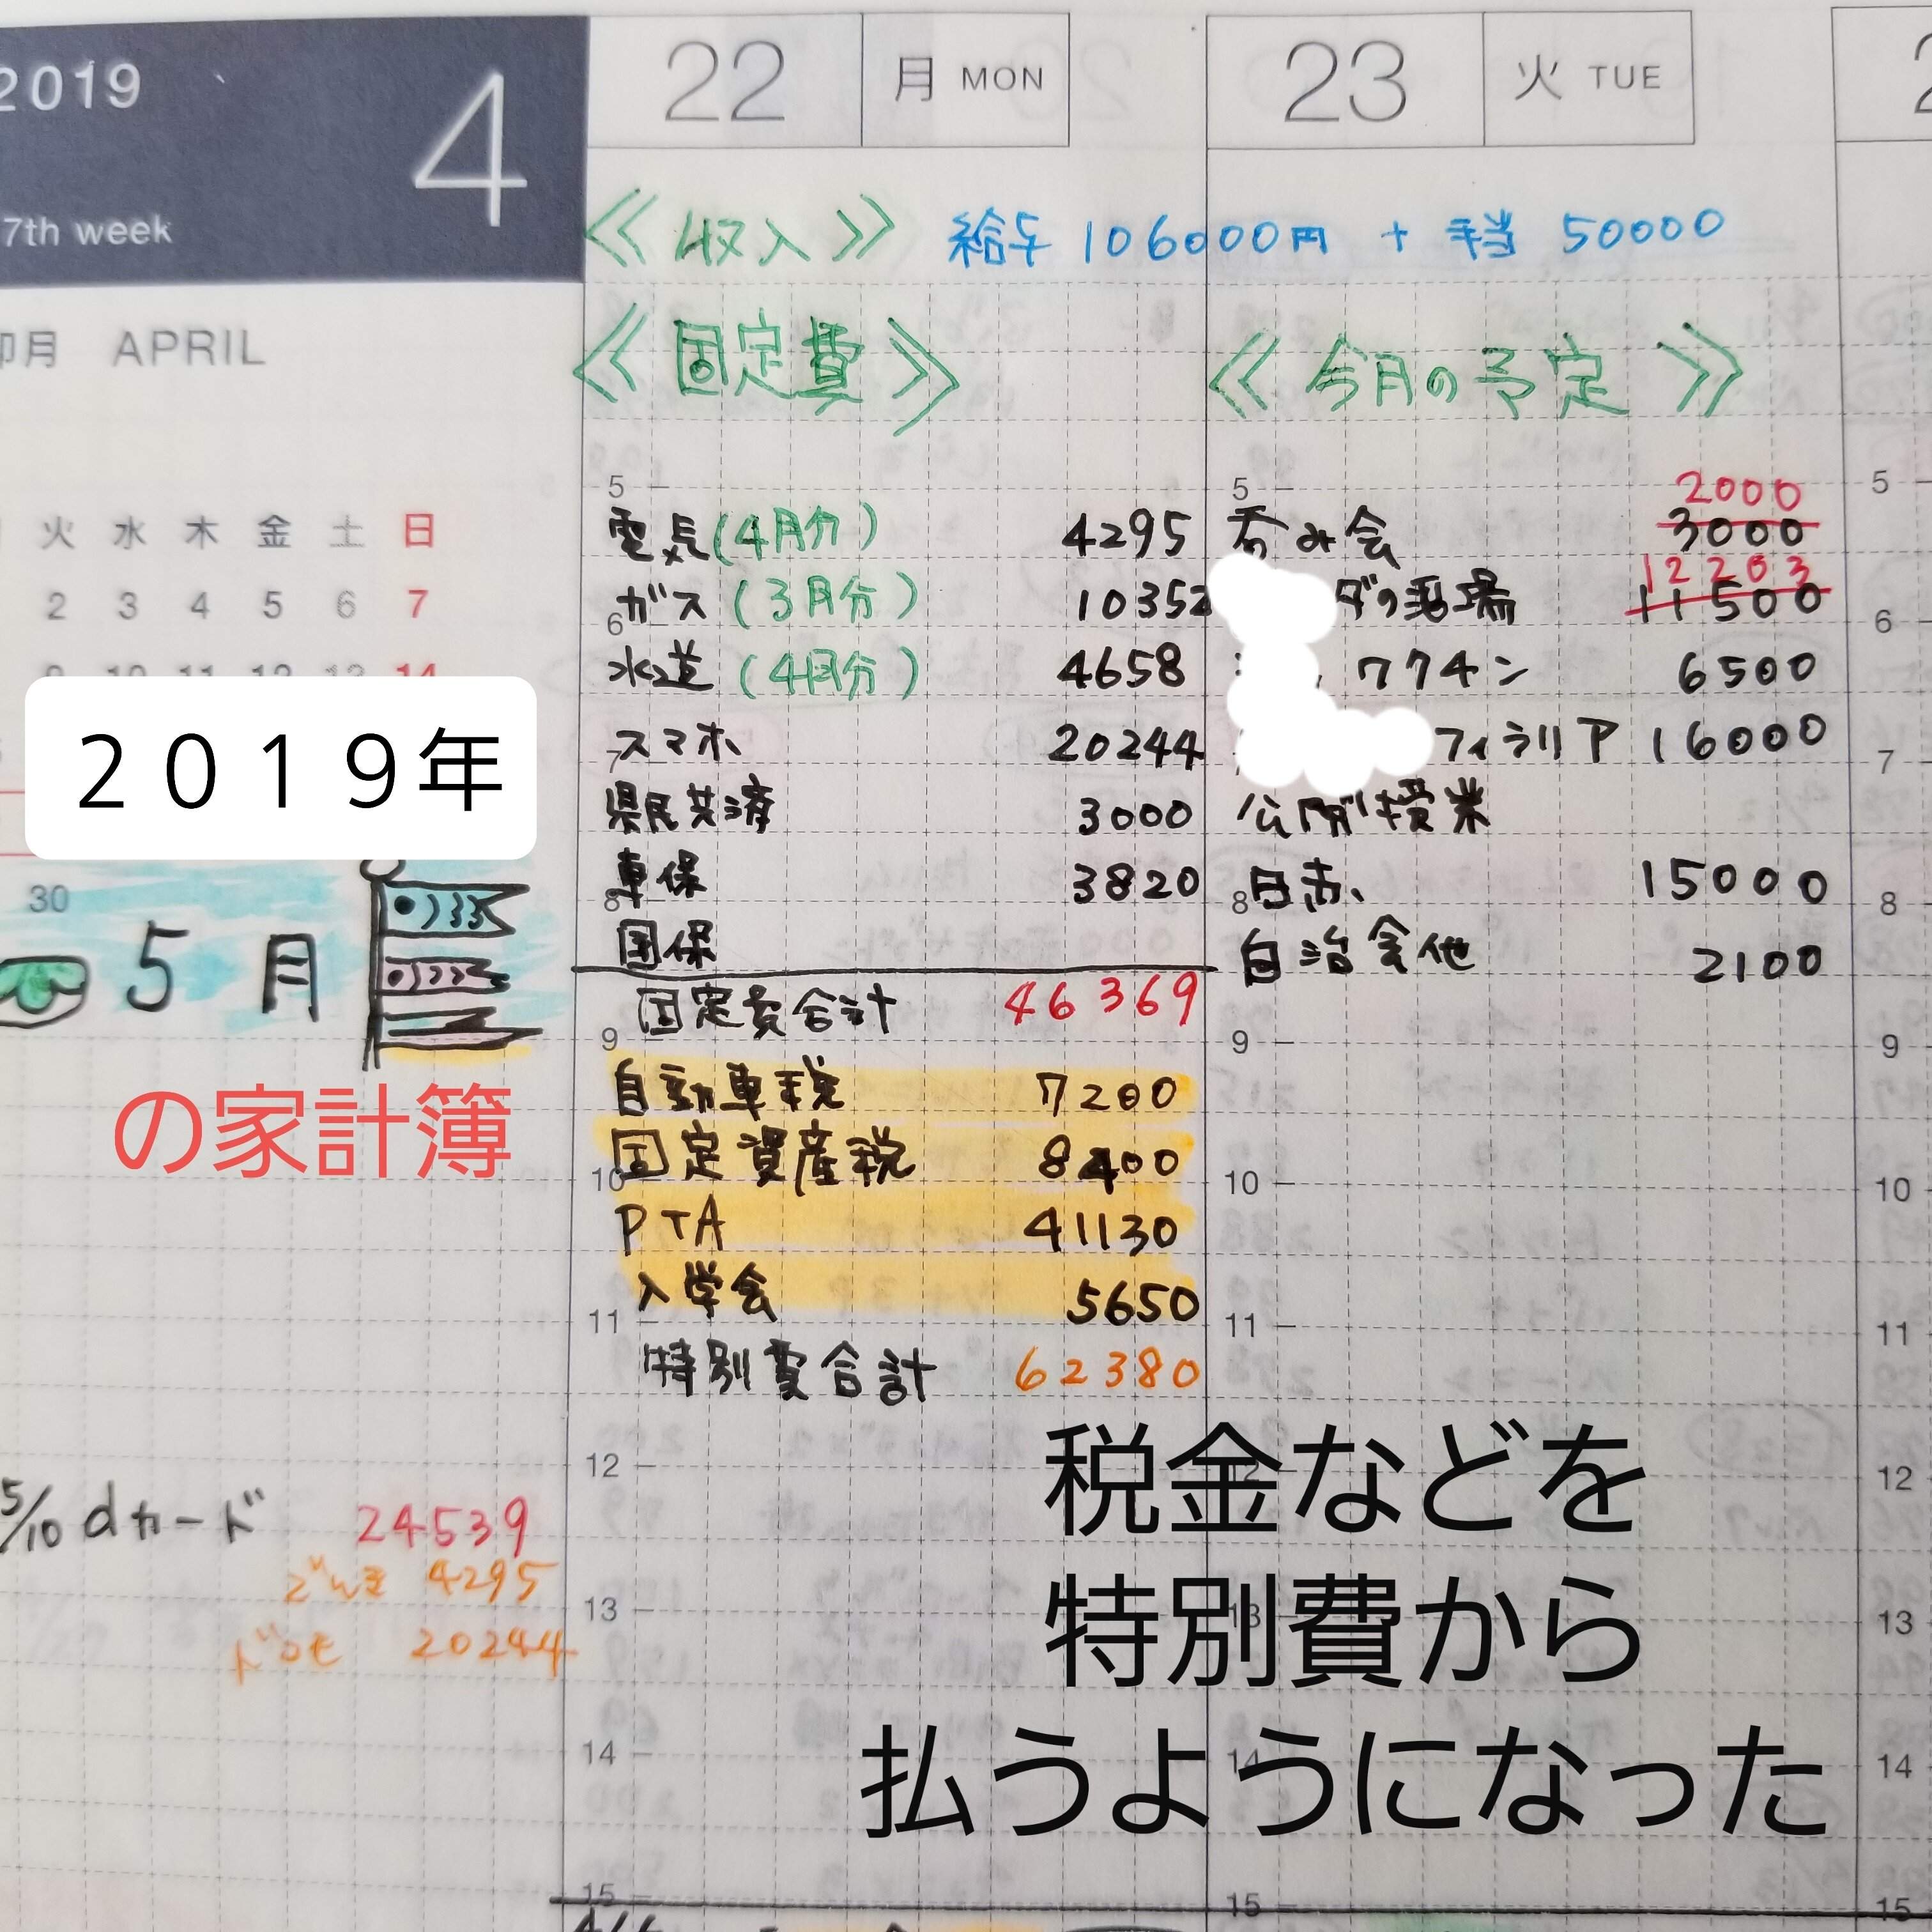 2019 4
7th week
22 月 MON
23 火 TUE
卯月 APRIL
火 水 木 金 土 日
2 3 4 5 6 7
9 10 11 12 13 14
2019年
30
5月
の家計簿
5/10 dカード 24539
でんき 4295
ドコモ 20244
≪収入≫ 給与 106000円 + 手当 50000
≪固定費≫
電気(4月分) 4295
ガス(3月分) 10352
水道(4月分) 4658
スマホ 20244
県民共済 3000
車保 3820
国保
固定費合計 46369
自動車税 7200
固定資産税 8400
PTA 41130
入学会 5650
特別費合計 62380
≪今月の予定≫
2000
呑み会 3000
12203
11500
ワクチン 6500
フィラリア 16000
公開授業
日赤 15000
自治会他 2100
税金などを
特別費から
払うようになった
5
6
7
8
9
10
11
12
13
14
15
5
6
7
8
9
10
11
12
13
14
15
5
6
7
8
9
10
11
12
13
14
15